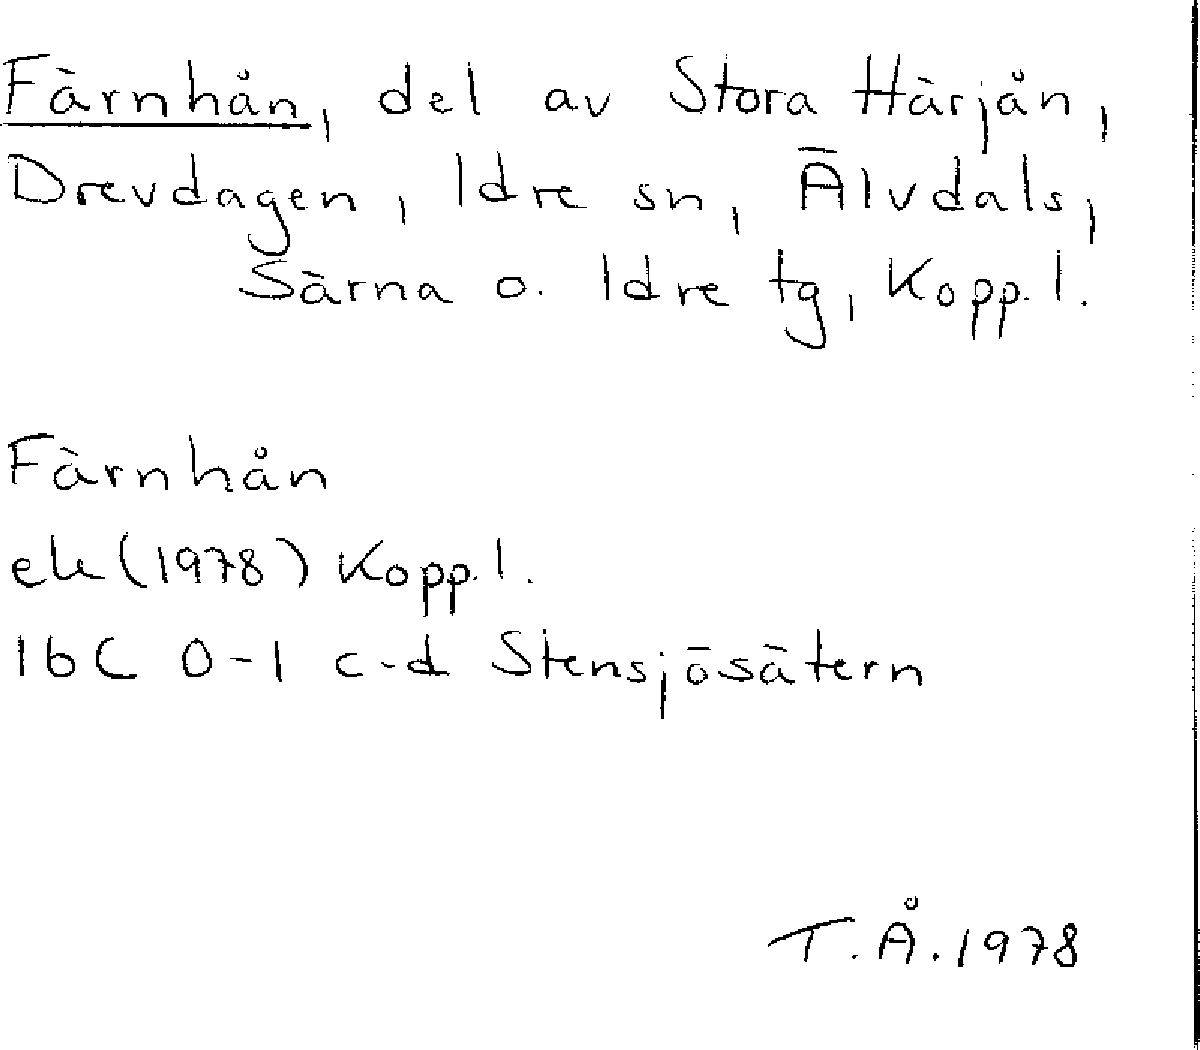 Färnhån, del av Stora Härjån,
Drevdagen, Idre sn, Älvdals,
Särna o. Idre tg, Kopp. l.
Färnhån
ek (1978) Kopp. l.
16C 0-1 c-d Stensjösätern
T.Å.1978